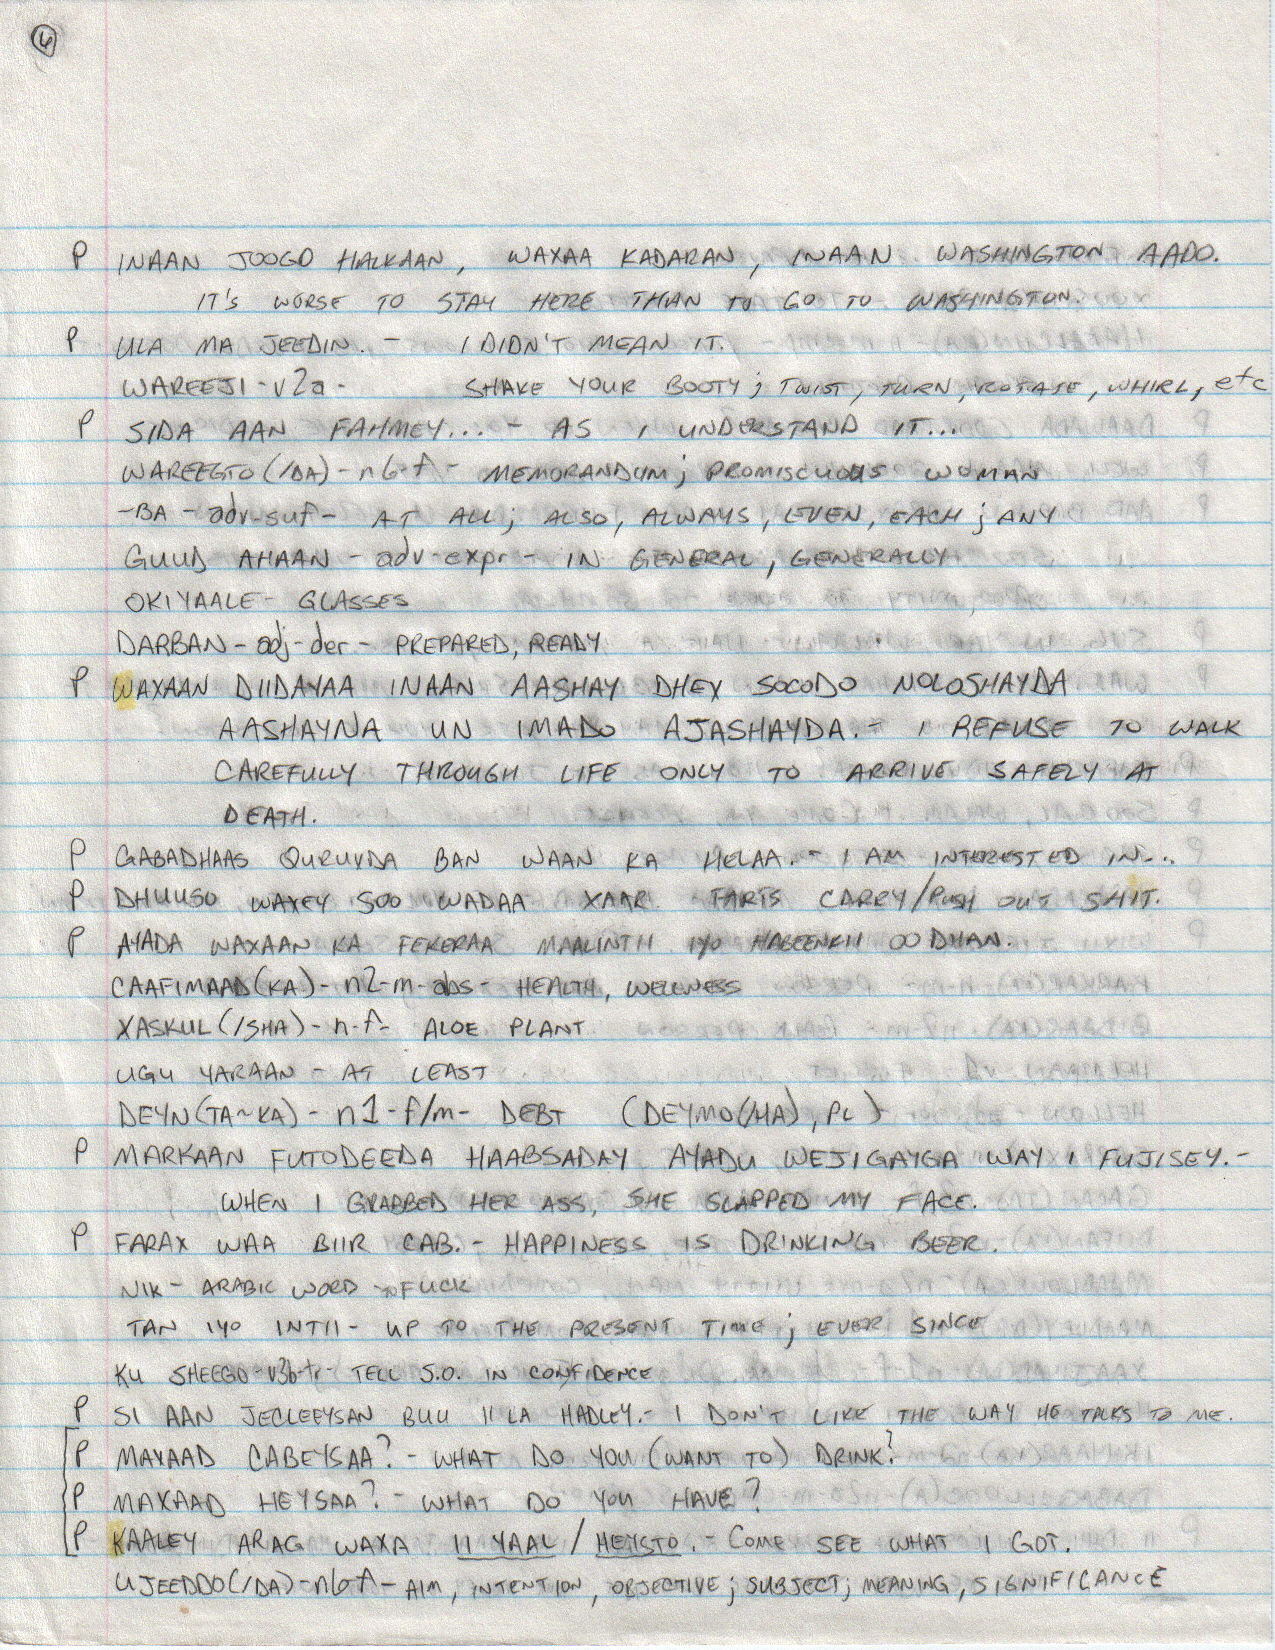 6
P INAAN JOOGO HALKAAN, WAXAA KADARAN, INAAN WASHINGTON AADO.
IT'S WORSE TO STAY HERE THAN TO GO TO WASHINGTON.
P ULA MA JEEDIN. - I DIDN'T MEAN IT.
WAREEJI - v2a - SHAKE YOUR BOOTY; TWIST, TURN, ROTATE, WHIRL, etc
P SIDA AAN FAHMEY... - AS I UNDERSTAND IT...
WAREEGTO(/DA) - n6-f - MEMORANDUM; PROMISCUOUS WOMAN
-BA - adv-suf - AT ALL; ALSO, ALWAYS, EVEN, EACH; ANY
GUUD AHAAN - adv-expr - IN GENERAL, GENERALLY
OKIYAALE - GLASSES
DARBAN - adj-der - PREPARED, READY
P WAXAAN DIIDAYAA INAAN AASHAY DHEX SOCODO NOLOSHAYDA
AASHAYNA UN IMADO AJASHAYDA. - I REFUSE TO WALK
CAREFULLY THROUGH LIFE ONLY TO ARRIVE SAFELY AT
DEATH.
P GABADHAAS QURUXDA BAN WAAN KA HELAA. - I AM INTERESTED IN...
P DHUUSO WAXEY SOO WADAA XAAR. FARTS CARRY/PUSH OUT SHIT.
P AYADA WAXAAN KA FEKERAA MAALINTII IYO HABEENKII OO DHAN.
CAAFIMAAD(KA) - n2-m-abs - HEALTH, WELLNESS
XASKUL(/SHA) - n-f - ALOE PLANT
UGU YARAAN - AT LEAST
DEYN(TA~KA) - n1-f/m - DEBT (DEYMO(/HA), PL)
P MARKAAN FUTODEEDA HAABSADAY AYADU WEJIGAYGA WAY I FUJISEY. -
WHEN I GRABBED HER ASS, SHE SLAPPED MY FACE.
P FARAX WAA BIIR CAB. - HAPPINESS IS DRINKING BEER.
NIK - ARABIC WORD TO FUCK
TAN IYO INTII - UP TO THE PRESENT TIME; EVER SINCE
KU SHEEGO - v3b-tr - TELL S.O. IN CONFIDENCE
P SI AAN JECLEEYSAN BUU II LA HADLEY. - I DON'T LIKE THE WAY HE TALKS TO ME.
P MAXAAD CABEYSAA? - WHAT DO YOU (WANT TO) DRINK?
P MAXAAD HEYSAA? - WHAT DO YOU HAVE?
P KAALEY ARAG WAXA II YAAL / HEYSTO. - COME SEE WHAT I GOT.
UJEEDDO(/DA) - n6-f - AIM, INTENTION, OBJECTIVE; SUBJECT; MEANING, SIGNIFICANCE